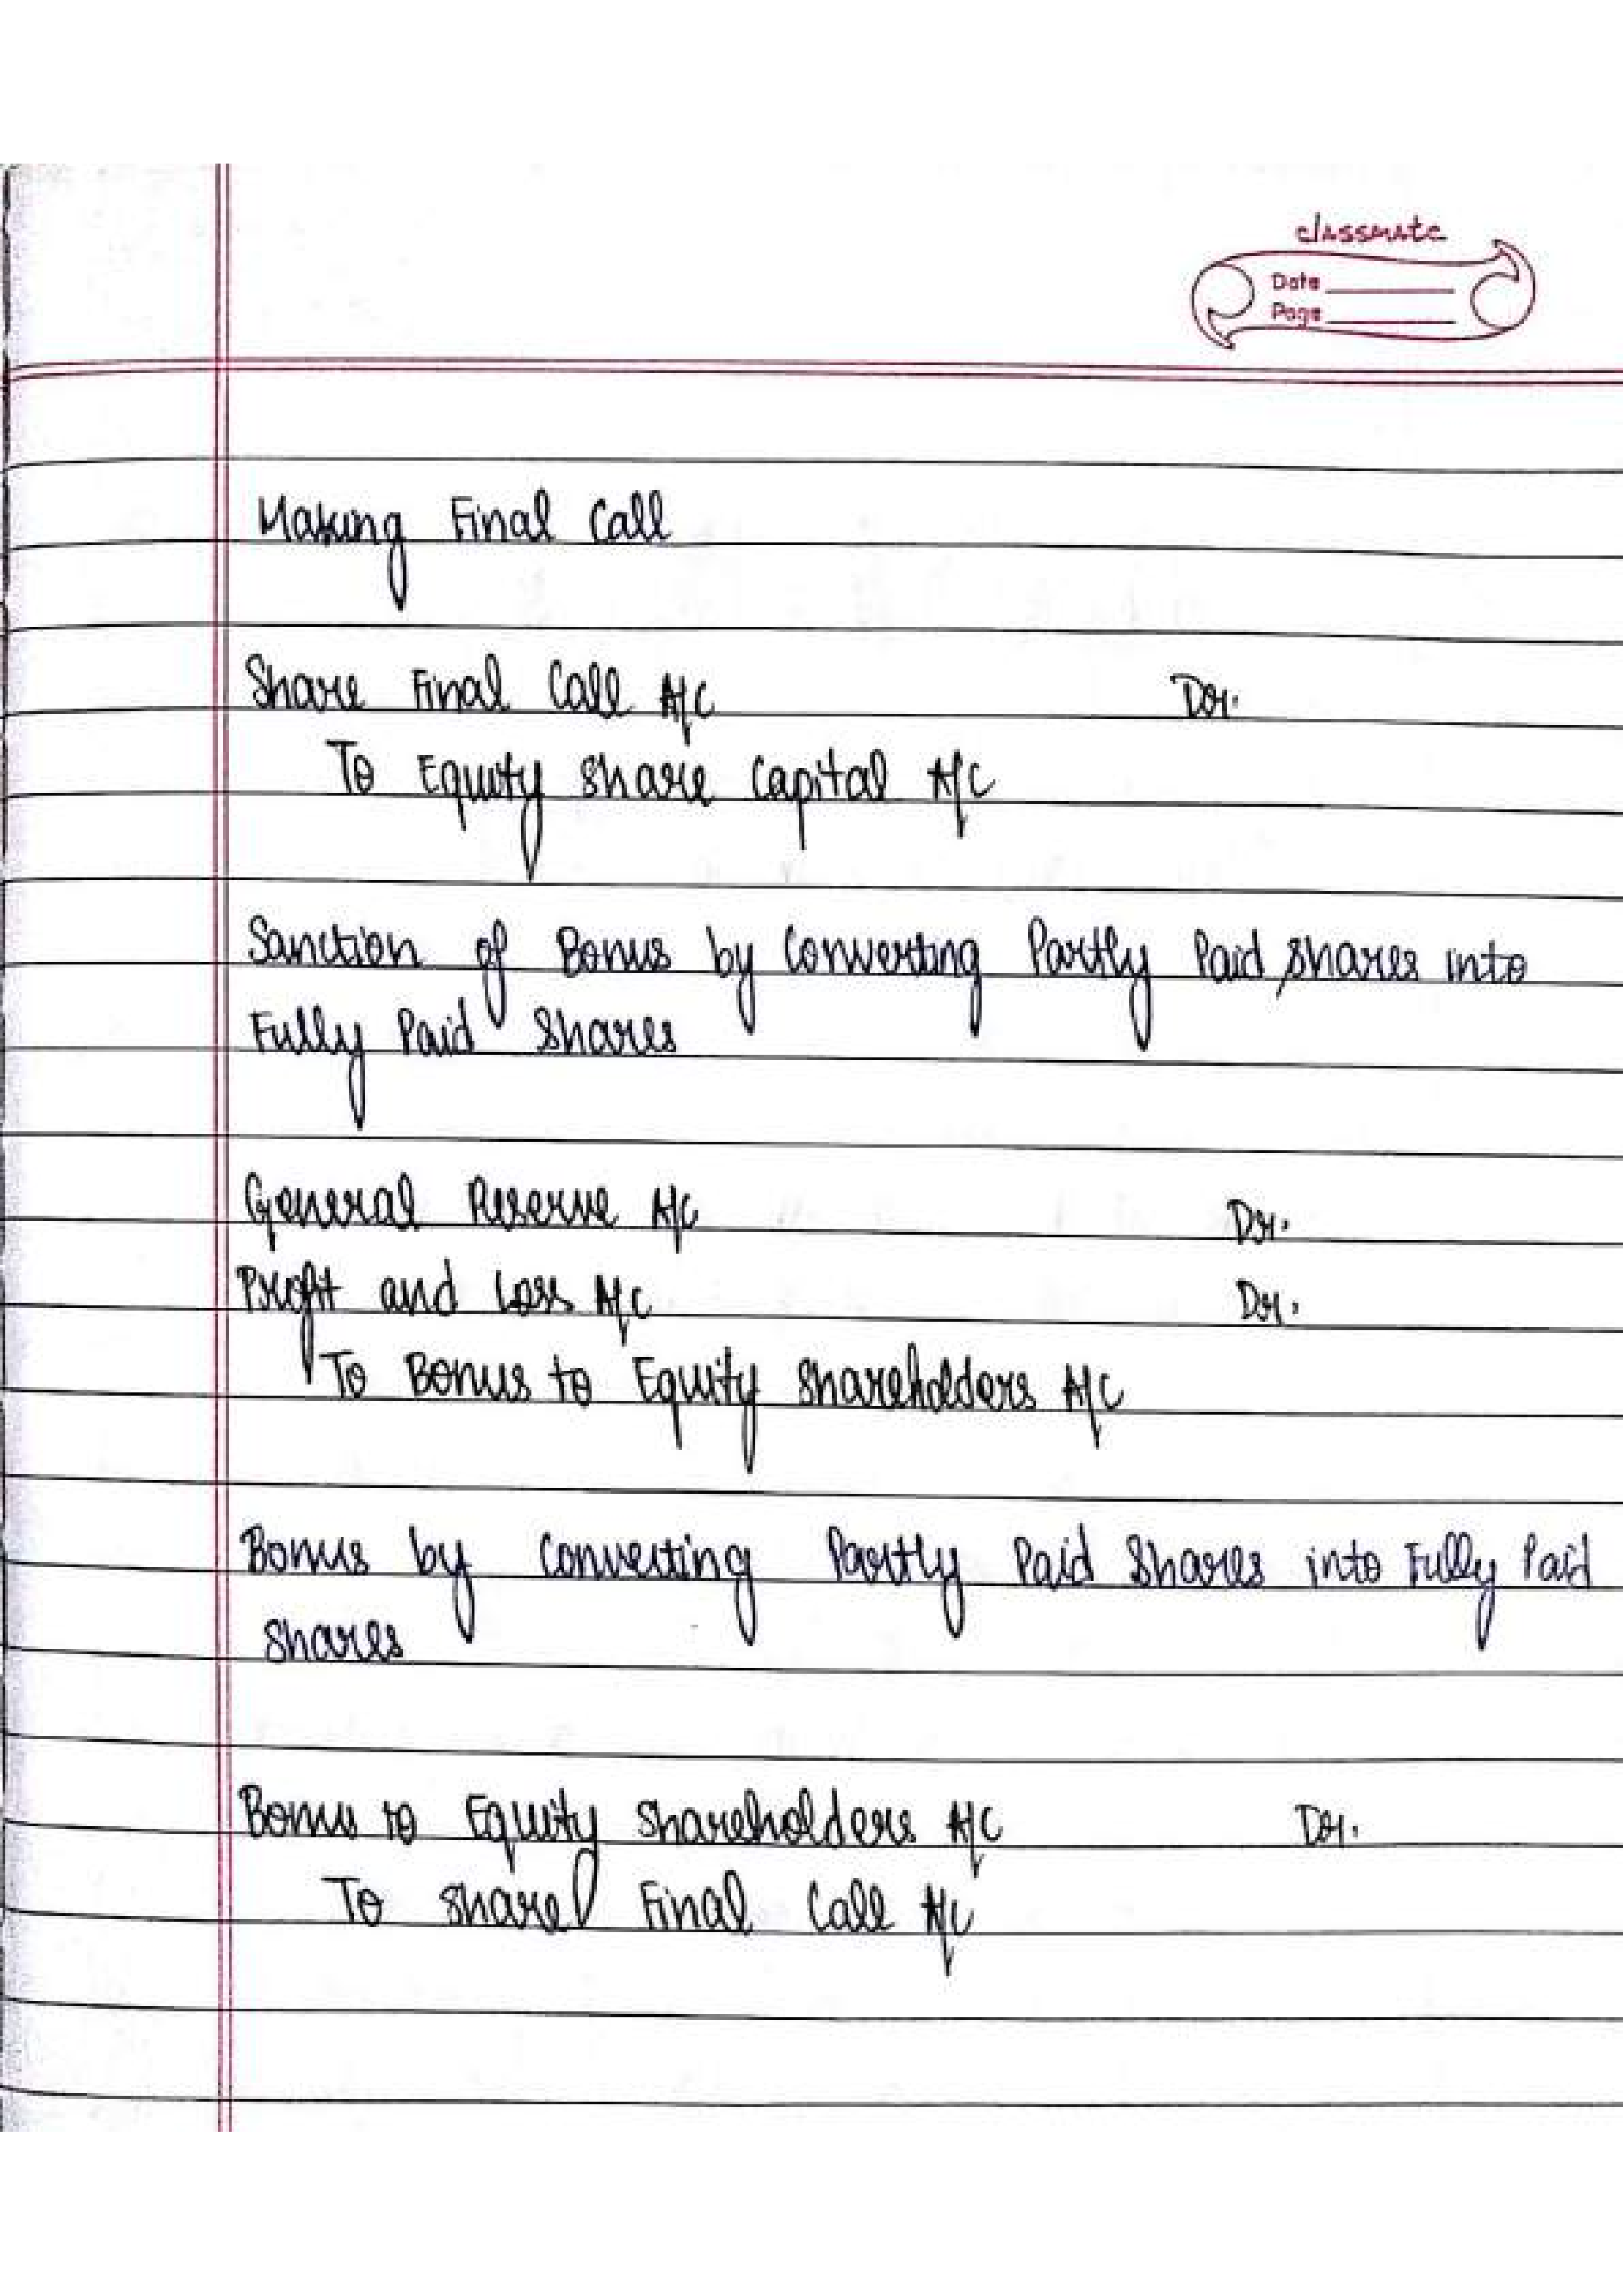 classmate
Date
Page
Making Final Call
Share Final Call A/C Dr.
To Equity Share Capital A/C
Sanction of Bonus by Converting Partly Paid Shares into
Fully Paid Shares
General Reserve A/C Dr.
Profit and Loss A/C Dr.
To Bonus to Equity Shareholders A/C
Bonus by Converting Partly Paid Shares into Fully Paid
Shares
Bonus to Equity Shareholders A/C Dr.
To Share Final Call A/C